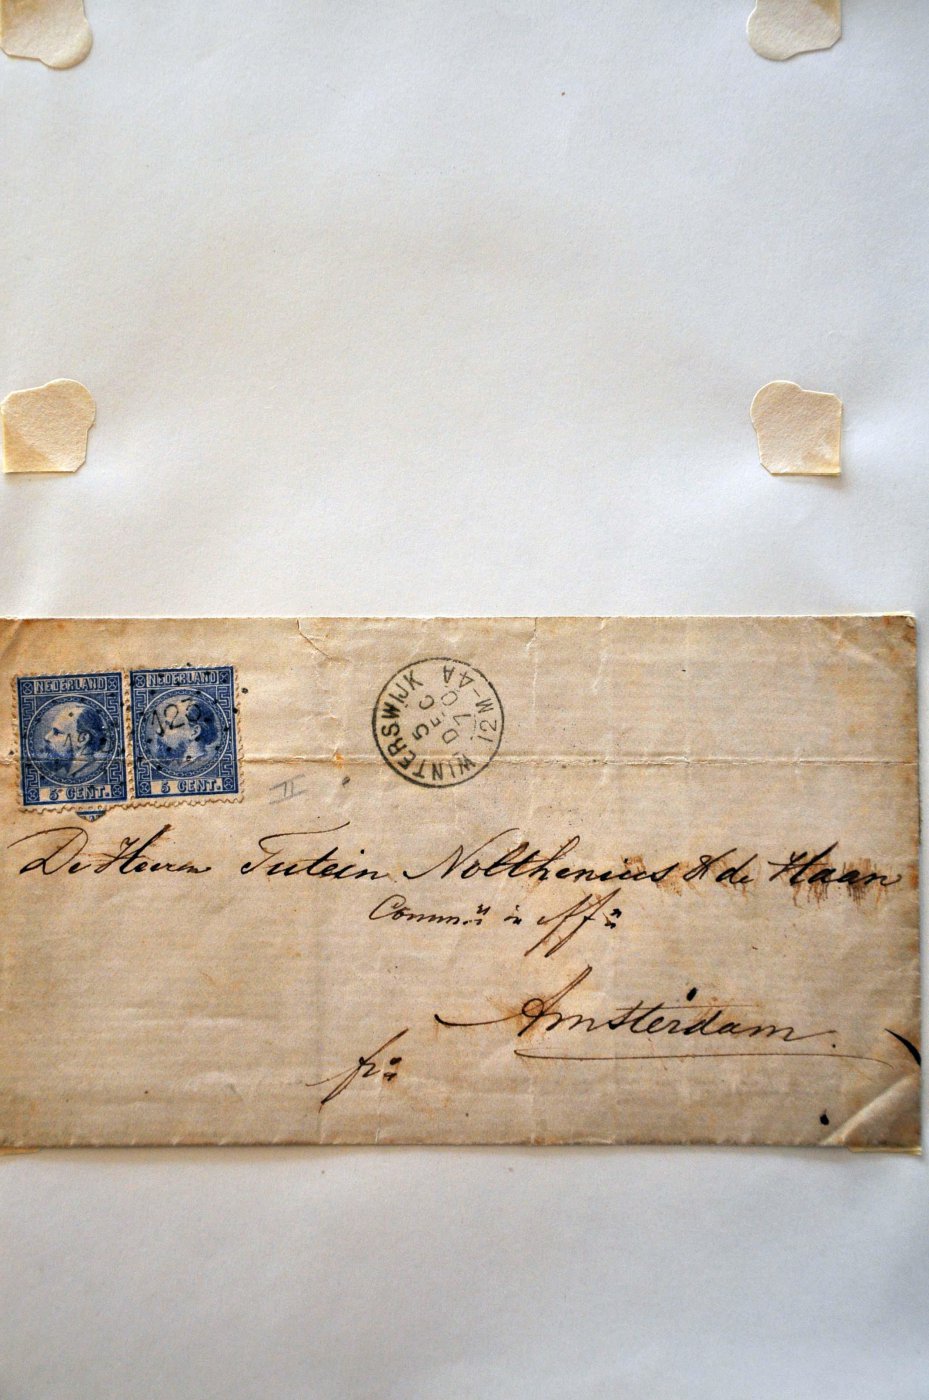 NEDERLAND NEDERLAND
12 123
5 CENT. 5 CENT.
WINTERSWIJK
5 DEC 70
12M-4A
II
De Heeren Tutein Nolthenius & de Haan
Comm:n in Eff:n
Amsterdam.
fr:o